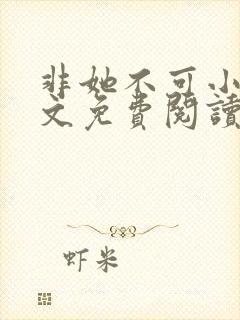 非她不可小
文免費閱讀
虾米